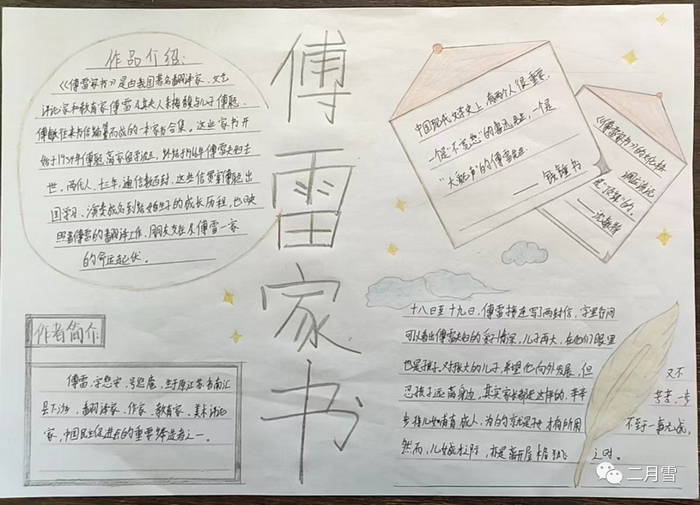 作品介绍:
《傅雷家书》是由我国著名翻译家、文艺
评论家和教育家傅雷及其夫人朱梅馥与儿子傅聪、
傅敏往来书信编纂而成的一本家书合集。这些家书开
始于1954年傅聪离家留学波兰,终结于1966年傅雷夫妇去
世。两代人、十二年、通信数百封,这些信贯穿傅聪出
国学习、演奏成名到结婚生子的成长历程,也映
照着傅雷的翻译工作、朋友交往及傅雷一家
的命运起伏。
傅雷家书
中国现代文学史上,有两个人很重要,
一个是"不
"大
——钱钟书
《傅雷家书》的
——
作者简介
傅雷,字怒安,号怒庵,生于原江苏省南汇
县下沙,翻译家、作家、教育家、美术评论
家,中国民主促进会的重要缔造者之一。
十八日至十九日,傅雷接连写了两封信,字里行间
可以看出傅雷夫妇的爱子情深,儿子再大,在他们眼里
也是孩子,对孩大的儿子,希望他向外发展,但 又不
忍孩子远离身边,其实家长都是这样的,辛辛 苦苦,一步
步将儿女培育成人,为的就是 有所用 不至于一事无成,
然而,儿女成 之际,亦是离开 之时。
二月雪